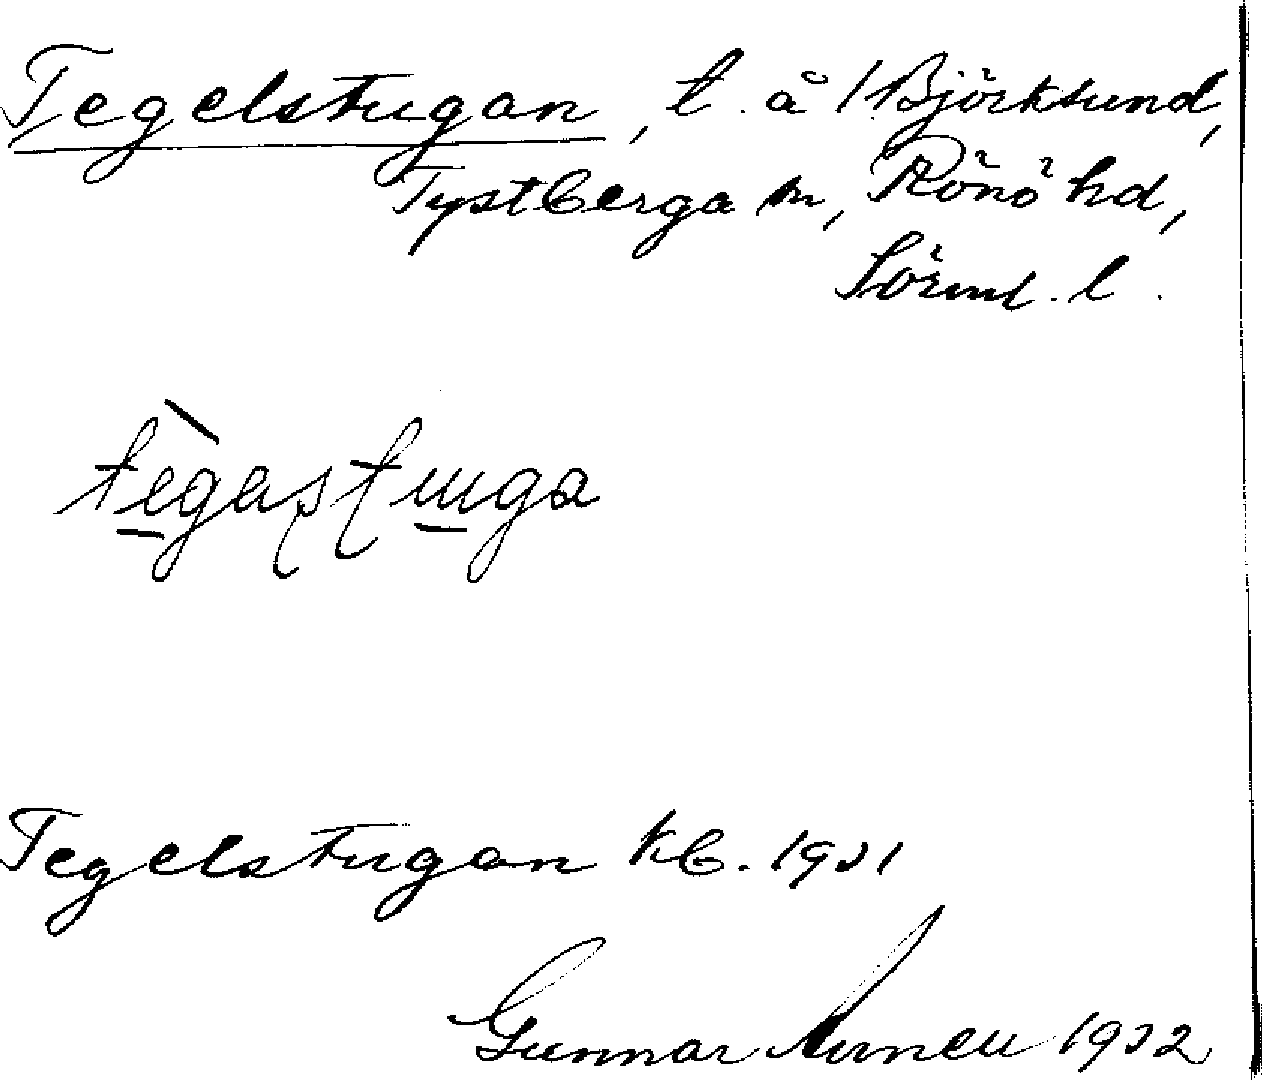 Tegelstugan, t. å Björklund,
Tystberga sn, Rönö hd,
Sörml. l.
tègastuga
Tegelstugan kb. 1931
Gunnar 1932